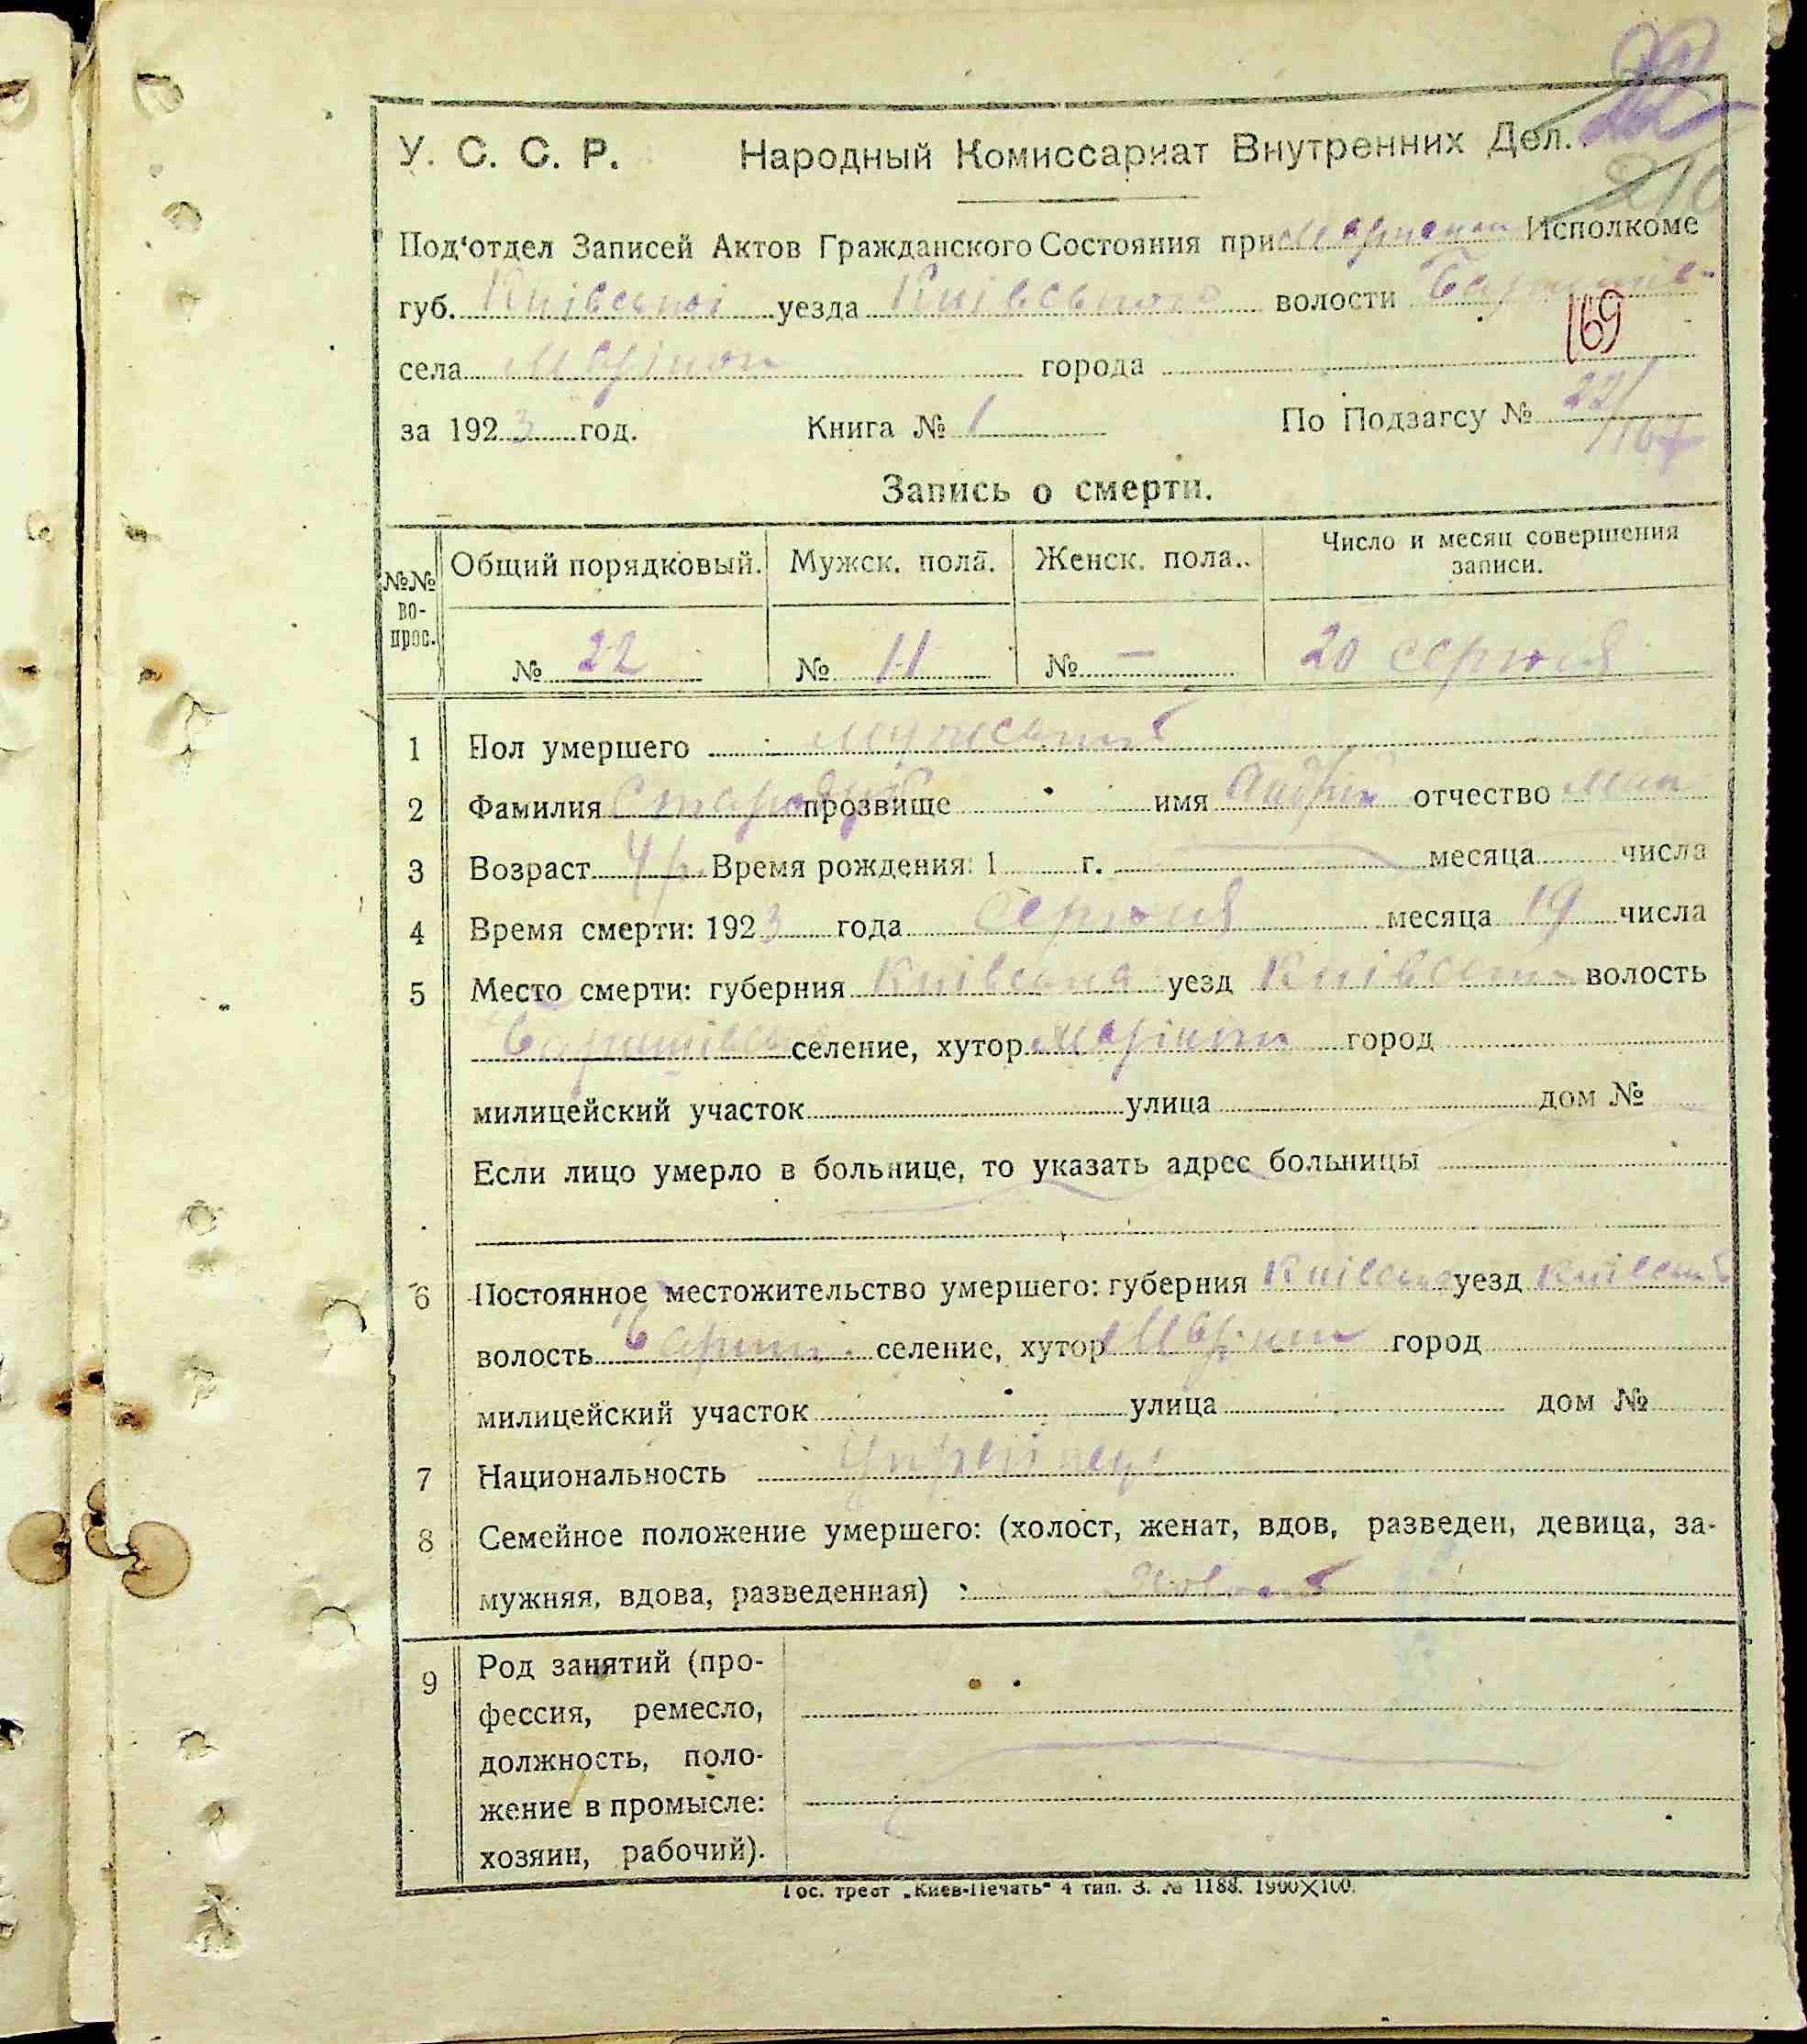 22
210
У. С. С. Р. Народный Комиссариат Внутренних Дел.
Под'отдел Записей Актов Гражданского Состояния при Исполкоме
губ. Київської уезда Київського волости
169
села города
за 1923 год. Книга № 1 По Подзагсу № 22/
Запись о смерти.
№№ во-прос. Общий порядковый. Мужск. пола. Женск. пола. Число и месяц совершения записи.
№ 22 № 11 № — 20 серпня
1 Пол умершего мужський
2 Фамилия прозвище имя Андрій отчество
3 Возраст Время рождения: 1 г. месяца числа
4 Время смерти: 1923 года Серпня месяца 19 числа
5 Место смерти: губерния Київська уезд волость
селение, хутор город
милицейский участок улица дом №
Если лицо умерло в больнице, то указать адрес больницы
6 Постоянное местожительство умершего: губерния уезд
волость селение, хутор город
милицейский участок улица дом №
7 Национальность
8 Семейное положение умершего: (холост, женат, вдов, разведен, девица, за-
мужняя, вдова, разведенная) :
9 Род занятий (про-
фессия, ремесло,
должность, поло-
жение в промысле:
хозяин, рабочий).
Гос. трест „Киев-Печать" 4 тип. З. № 1188. 1900×100.